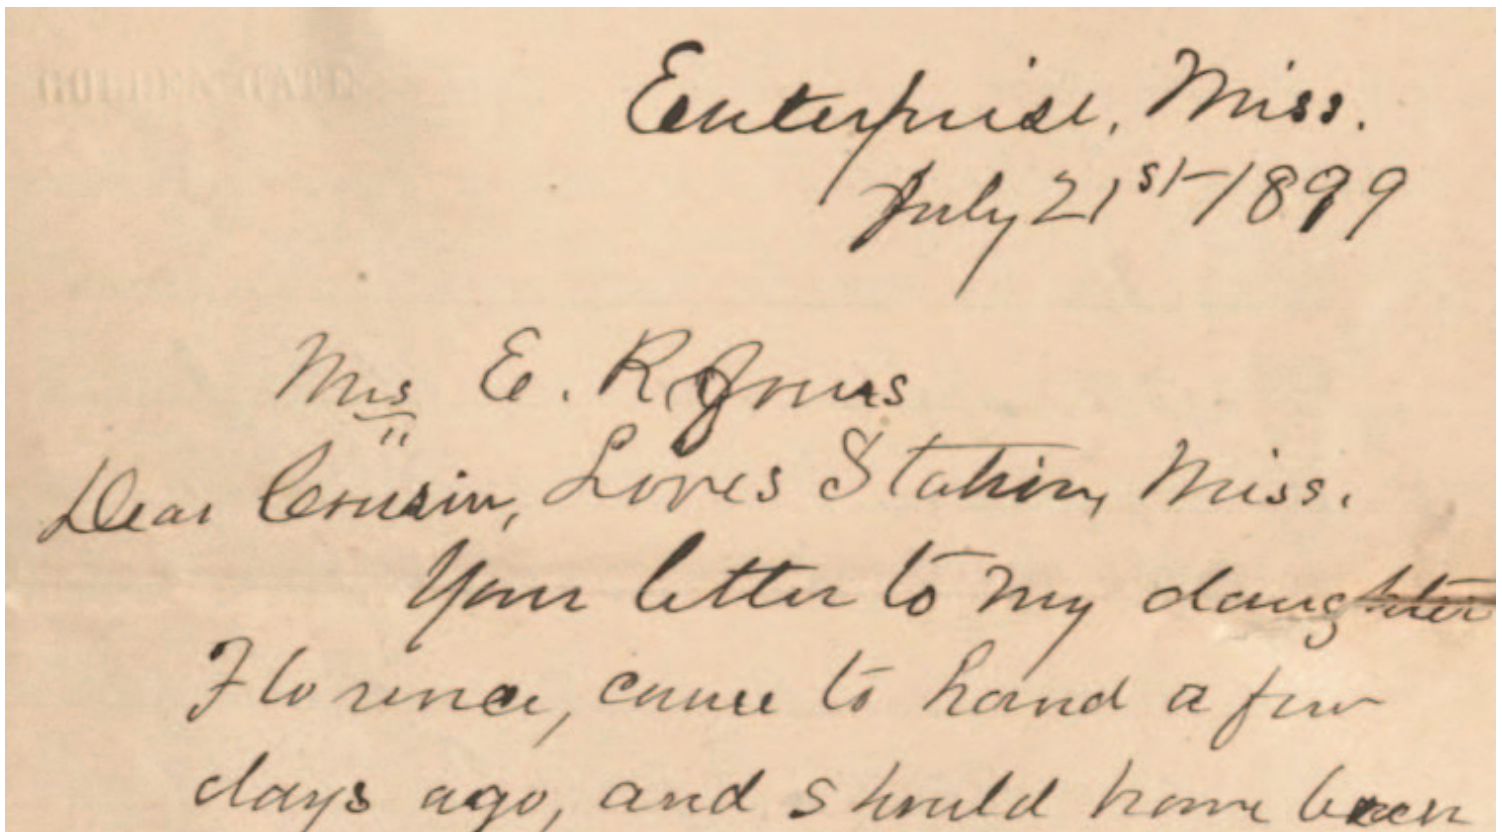 GOLDEN GATE
Enterprise, Miss.
July 21st 1899
Mrs E. R Jones
Dear Cousin, Loves Station, Miss.
Your letter to my daughter
Florence, came to hand a few
days ago, and should have been